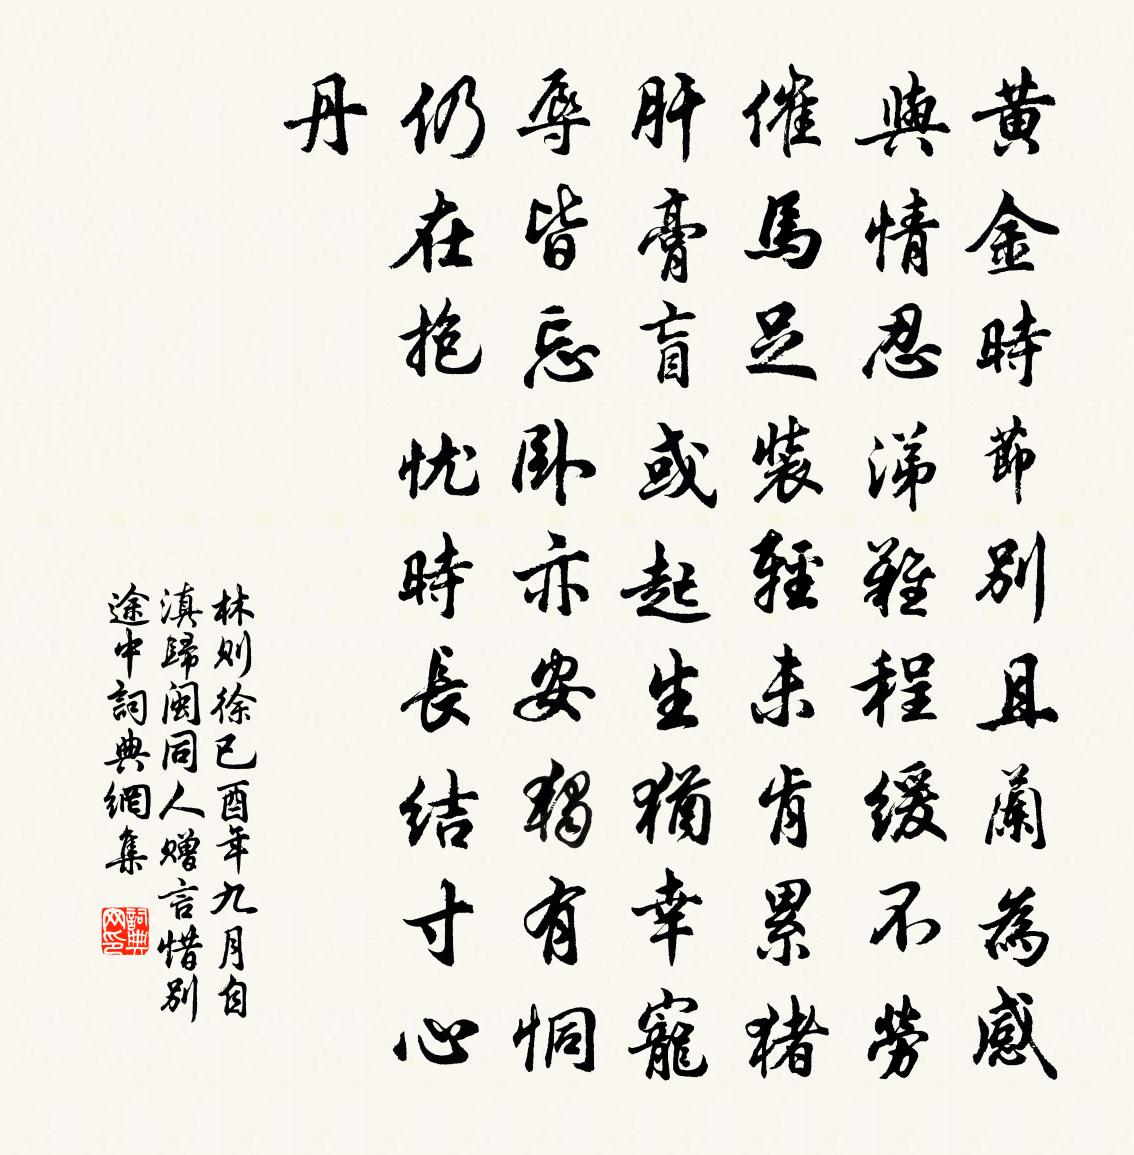 黄金時節別且蘭為感
輿情忍涕難程緩不勞
催馬足裝輕未肯累猪
肝膏盲或起生猶幸寵
辱皆忘臥亦安獨有恫
仍在抱忧時長結寸心
丹
林則徐已酉年九月自
滇歸閩同人贈言惜別
途中詞典網集
詞典
网印